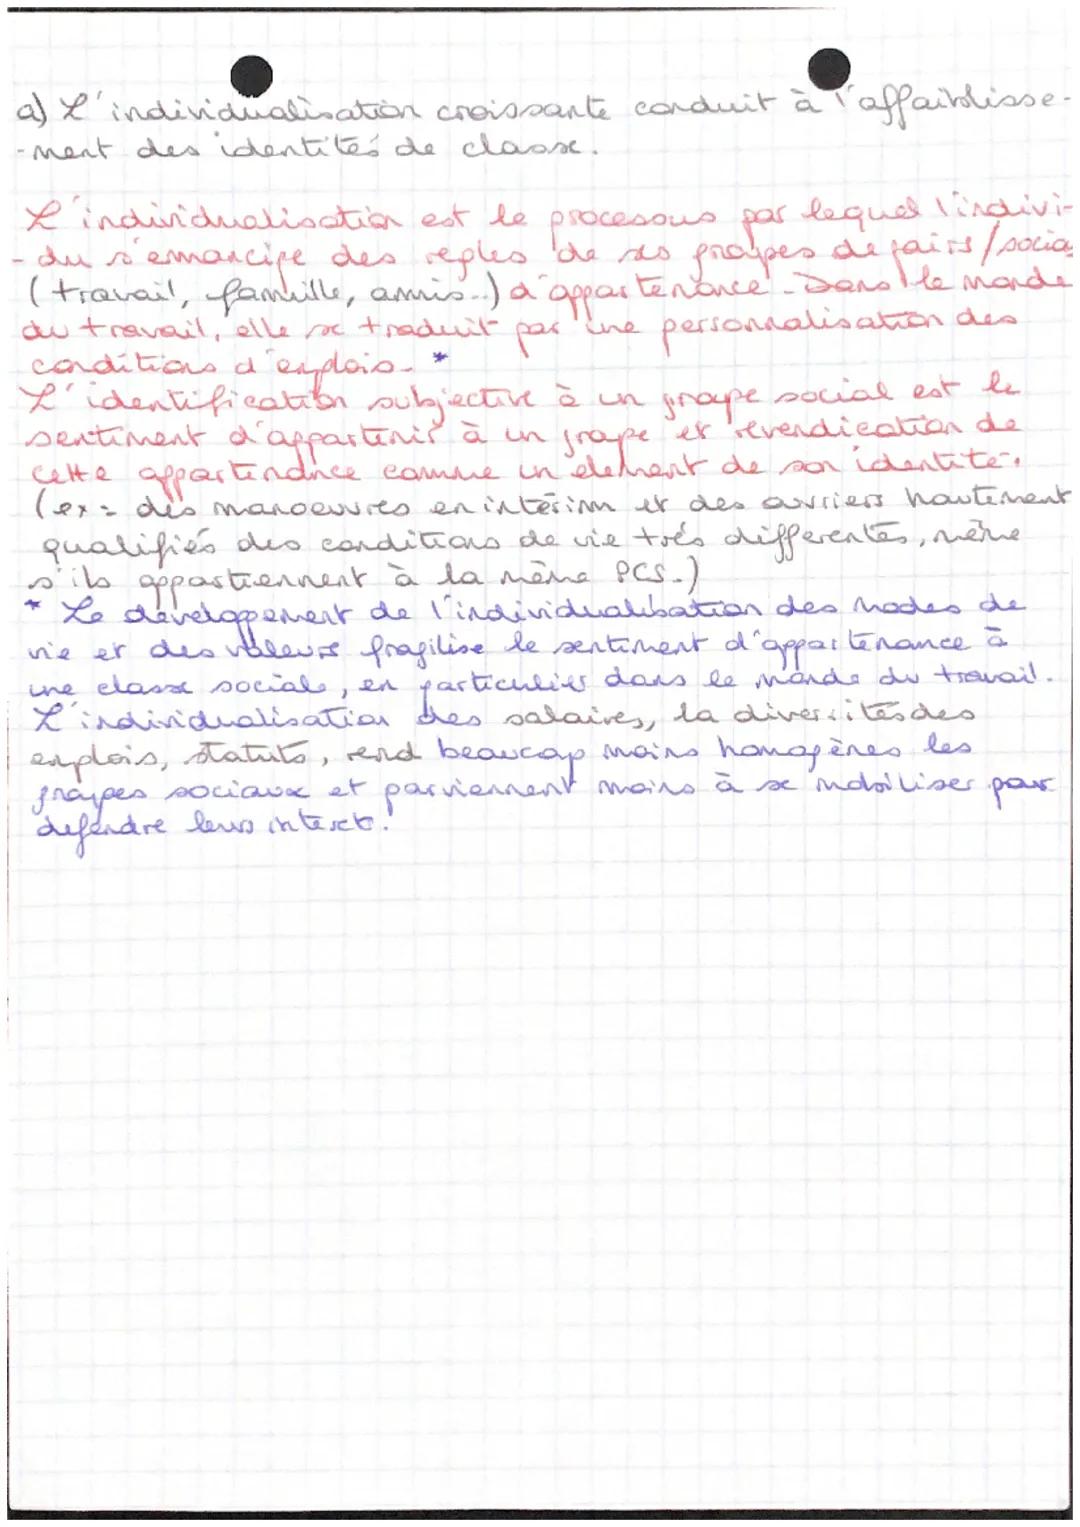 a) L'individualisation croissante conduit à l'affaiblisse-
-ment des identités de classe.
L'individualisation est le processus par lequel l'indivi-
-du s'émancipe des règles de ses groupes de pairs/socia
(travail, famille, amis..) d'appartenance. Dans le monde
du travail, elle se traduit par une personnalisation des
conditions d'emplois. *
L'identification subjective à un groupe social est le
sentiment d'appartenir à un groupe et revendication de
cette appartenance comme un élément de son identité.
(ex = des manoeuvres en intérim et des ouvriers hautement
qualifiés des conditions de vie très différentes, même
s'ils appartiennent à la même PCS.)
* Le développement de l'individualisation des modes de
vie et des valeurs fragilise le sentiment d'appartenance à
une classe sociale, en particulier dans le monde du travail.
L'individualisation des salaires, la diversités des
emplois, statuts, rend beaucoup moins homogènes les
groupes sociaux et parviennent moins à se mobiliser pour
défendre leurs interets.